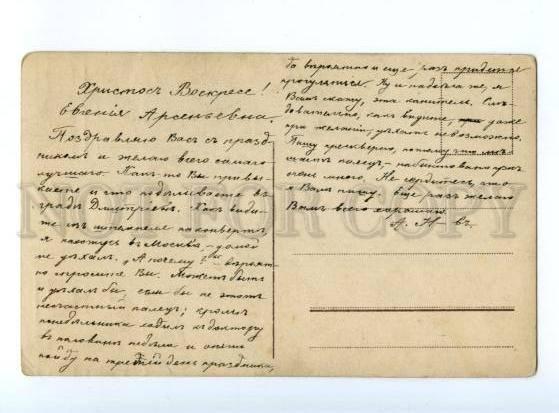 Христосъ Воскресе!
Евгенія Арсеньевна.
Поздравляю Васъ съ празд-
никомъ и желаю всего самаго
лучшаго. Какъ-то Вы пр
ваете и что подѣлываете въ
градѣ Дмитріевѣ. Какъ види-
те изъ штемпеля на конвертѣ
я нахожусь въ Москвѣ, — домой
не уѣхалъ. „А почему?" — вѣроят-
но спросите Вы. Можетъ быть
и уѣхалъ бы, если бы не этотъ
несчастный палецъ; кромѣ
понедѣльника ходилъ къ доктору
въ половинѣ недѣли и опять
пойду на третій день праздника,
да вѣроятно и еще разъ придется
прогуляться. Ну и надоѣла же, я
Вамъ скажу, эта канитель. Слѣ-
довательно, какъ видите, даже
при желаніи, уѣхать невозможно.
Пишу прескверно, потому что мѣ-
шаетъ палецъ —
очень много. Не сердитесь, что
я Вамъ пишу. Еще разъ желаю
Вамъ всего хорошаго.
А. Н. въ.
NOT FOR COPY